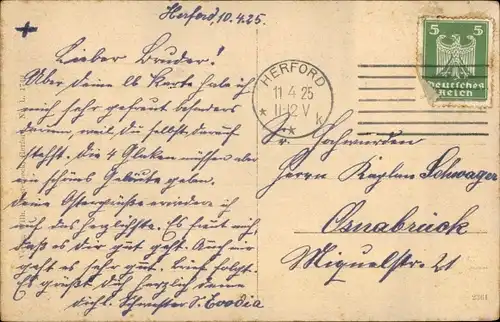 Herford, 10.4.25.
Lieber Bruder!
Über deine lb Karte habe ich
mich sehr gefreut besonders
darum, weil du selbst darauf
stehst. Die 4 Glocken müssen aber
ein schönes Geläute geben.
Deine Ostergrüße erwidere ich
auf das herzlichste. Es freut mich,
daß es dir gut geht. Auch mir
geht es sehr gut. Brief folgt.
Es grüßt dich herzlich deine
dichl. Schwester S.
HERFORD
11 4 25
* 11-12 V *
* * k
5 5
Deutsches
Reich
Sr. Hochwürden
Herrn Kaplan Schwager
Osnabrück
Miquelstr. 21
2261